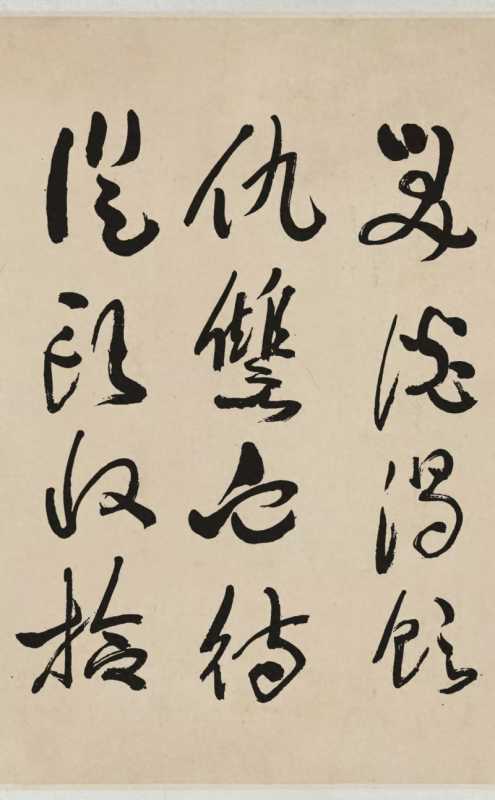 笑談渴飲
仇讐血待
從頭收拾